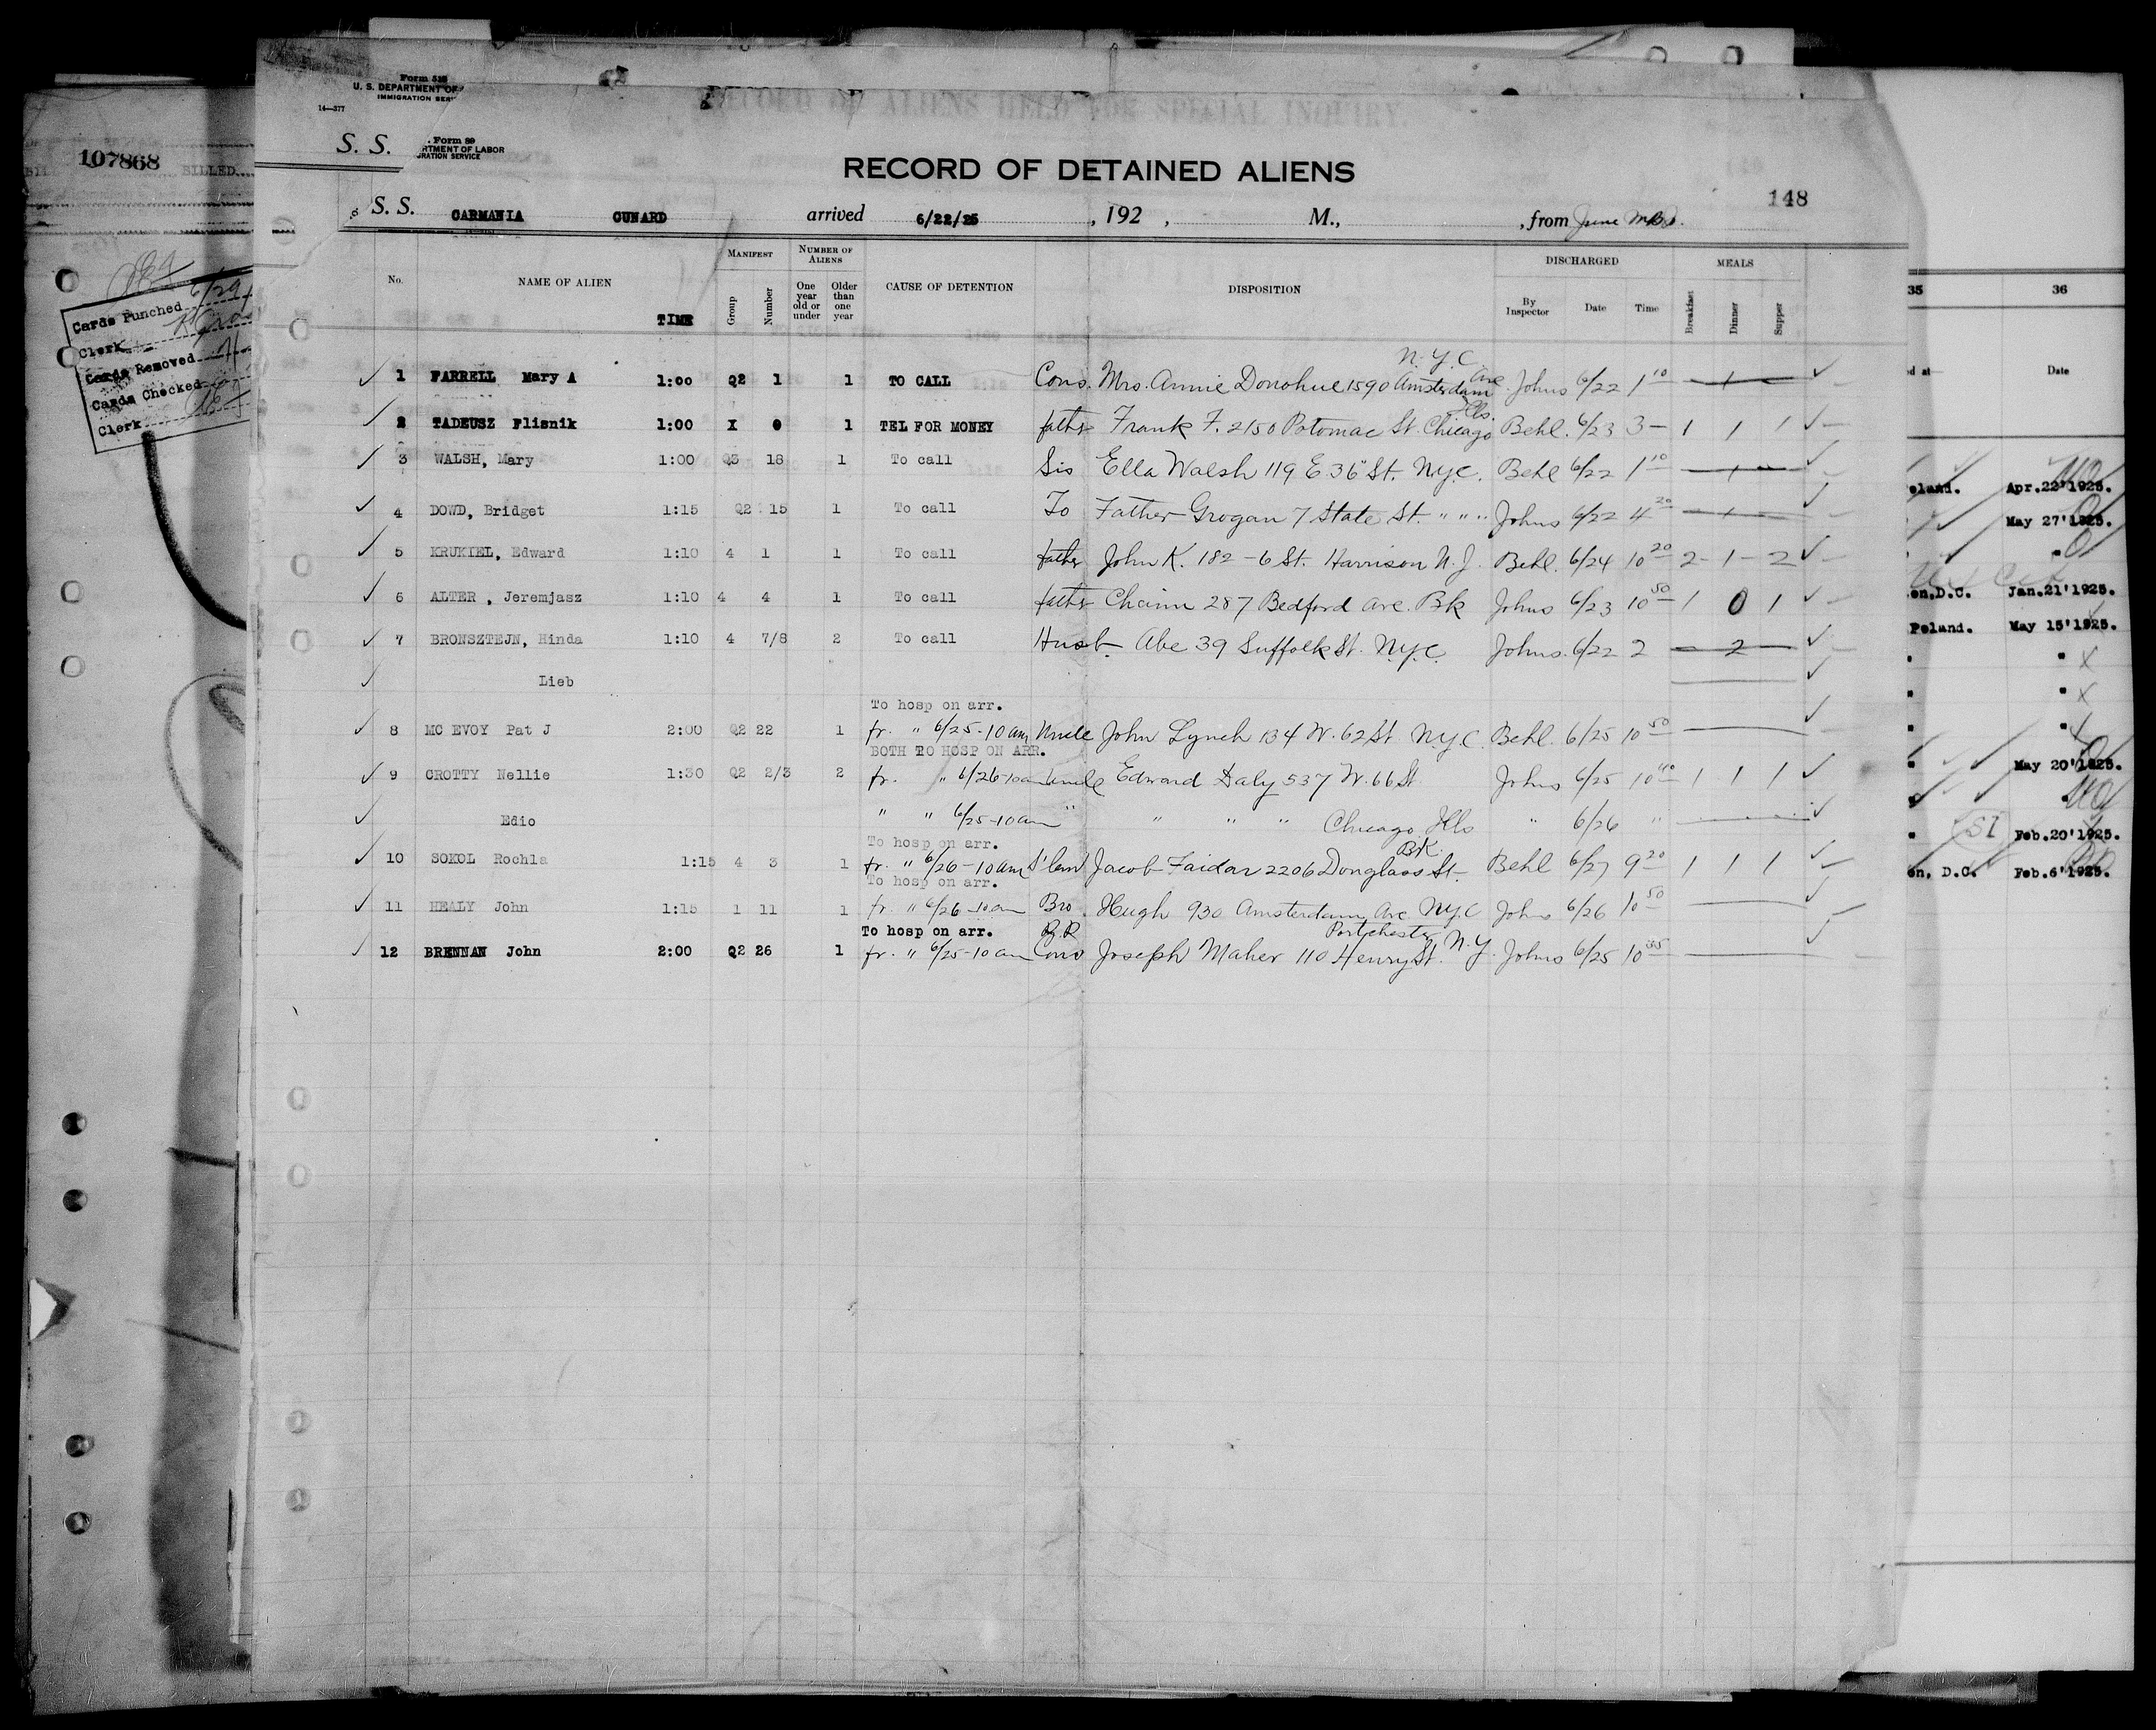 Form 518
U. S. DEPARTMENT OF
IMMIGRATION SER
14—377
RECORD OF ALIENS HELD FOR SPECIAL INQUIRY.
S. S.
Form 89
RTMENT OF LABOR
RATION SERVICE
107868
BILLED
RECORD OF DETAINED ALIENS
148
S. S. CARMANIA CUNARD arrived 6/22/25, 192 , M., , from June
No. NAME OF ALIEN TIME MANIFEST Group Number NUMBER OF ALIENS One year old or under Older than one year CAUSE OF DETENTION DISPOSITION DISCHARGED By Inspector Date Time MEALS Breakfast Dinner Supper
Cards Punched 6/29
Clerk
Cards Removed
Cards Checked
Clerk
N.Y.C
1 FARRELL Mary A 1:00 Q2 1 1 TO CALL Cous. Mrs. Annie Donohue 1590 Amsterdam Ave. Johns 6/22 1 10 — 1 —
Ills.
2 TADEUSZ Flisnik 1:00 X 0 1 TEL FOR MONEY father Frank F. 2150 Potomac St. Chicago Behl. 6/23 3 — 1 1 1
3 WALSH, Mary 1:00 Q3 18 1 To call Sis Ella Walsh 119 E 36" St. N.Y.C. Behl 6/22 1 10 — 1 —
4 DOWD, Bridget 1:15 Q2 15 1 To call To Father Grogan 7 State St. " " " Johns 6/22 4 20 — 1 —
5 KRUKIEL, Edward 1:10 4 1 1 To call father John K. 182 - 6 St. Harrison N.J. Behl. 6/24 10 20 2 - 1 - 2
6 ALTER , Jeremjasz 1:10 4 4 1 To call father Chaim 287 Bedford Ave. Bk Johns 6/23 10 50 1 0 1
7 BRONSZTEJN, Hinda 1:10 4 7/8 2 To call Husb. Abe 39 Suffolk St. N.Y.C. Johns. 6/22 2 — 2 —
Lieb
To hosp on arr.
8 MC EVOY Pat J 2:00 Q2 22 1 fr. " 6/25-10 am Uncle John Lynch 134 W. 62 St N.Y.C. Behl. 6/25 10 50
BOTH TO HOSP ON ARR.
9 CROTTY Nellie 1:30 Q2 2/3 2 fr. " 6/26-10 am Uncle Edward Daly 537 W. 66 St Johns 6/25 10 40 1 1 1
Edio " " 6/25-10 am " " " " Chicago Ills " 6/26 "
To hosp on arr. BK.
10 SOKOL Rochla 1:15 4 3 1 fr. " 6/26-10 am Jacob Faidar 2206 Douglass St. Behl 6/27 9 20 1 1 1
To hosp on arr.
11 HEALY John 1:15 1 11 1 fr. " 6/26-10 am Bro. Hugh 930 Amsterdam Ave NYC Johns 6/26 10 50
To hosp on arr. Portchester
12 BRENNAN John 2:00 Q2 26 1 fr. " 6/25-10 am Cous Joseph Maher 110 Henry St. N.Y. Johns 6/25 10 35
35 36
d at— Date
eland. Apr.22'1925.
May 27'1925.
"
en,D.C. Jan.21'1925.
Poland. May 15'1925.
" "
" "
" "
" May 20'1925.
" "
" SI Feb.20'1925.
on, D.C. Feb.6'1925.